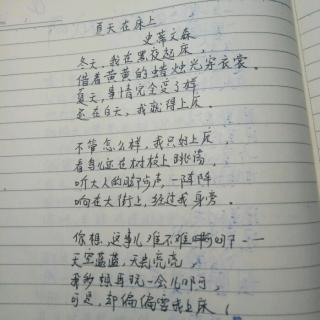 夏天在床上
史蒂文森
冬天，我在黑夜起床，
借着黄黄的蜡烛光穿衣裳。
夏天，事情完全变了样
还在白天，我就得上床。
不管怎么样，我只好上床，
看鸟儿还在树枝上跳荡，
听大人的脚步声，一阵阵
响在大街上，经过我身旁。
你想，这事儿难不难啊
天空蓝蓝，天光亮亮，
我多想再玩一会儿啊，
可是，却偏偏要我上床！